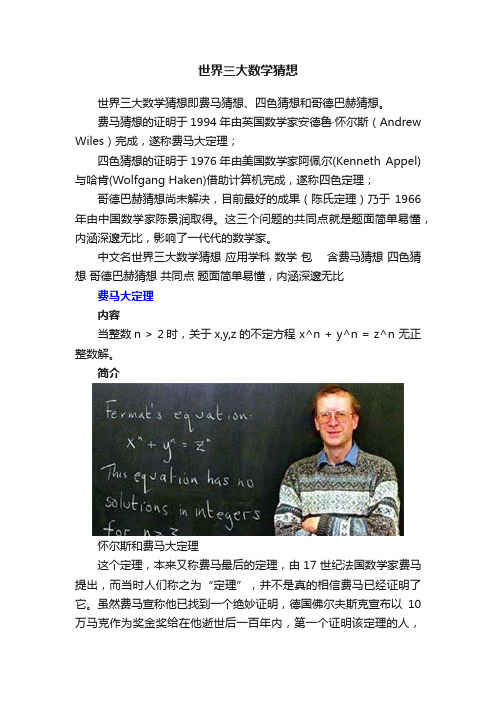 世界三大数学猜想
世界三大数学猜想即费马猜想、四色猜想和哥德巴赫猜想。
费马猜想的证明于1994年由英国数学家安德鲁·怀尔斯（Andrew
Wiles）完成，遂称费马大定理；
四色猜想的证明于1976年由美国数学家阿佩尔(Kenneth Appel)
与哈肯(Wolfgang Haken)借助计算机完成，遂称四色定理；
哥德巴赫猜想尚未解决，目前最好的成果（陈氏定理）乃于1966
年由中国数学家陈景润取得。这三个问题的共同点就是题面简单易懂，
内涵深邃无比，影响了一代代的数学家。
中文名世界三大数学猜想 应用学科 数学 包 含费马猜想 四色猜
想 哥德巴赫猜想 共同点 题面简单易懂，内涵深邃无比
费马大定理
内容
当整数n > 2时，关于x,y,z的不定方程 x^n + y^n = z^n 无正
整数解。
简介
Fermat's equation:
xⁿ + yⁿ = zⁿ
This equation has no
solutions in integers
for n≥3
怀尔斯和费马大定理
这个定理，本来又称费马最后的定理，由17世纪法国数学家费马
提出，而当时人们称之为“定理”，并不是真的相信费马已经证明了
它。虽然费马宣称他已找到一个绝妙证明，德国佛尔夫斯克宣布以10
万马克作为奖金奖给在他逝世后一百年内，第一个证明该定理的人，